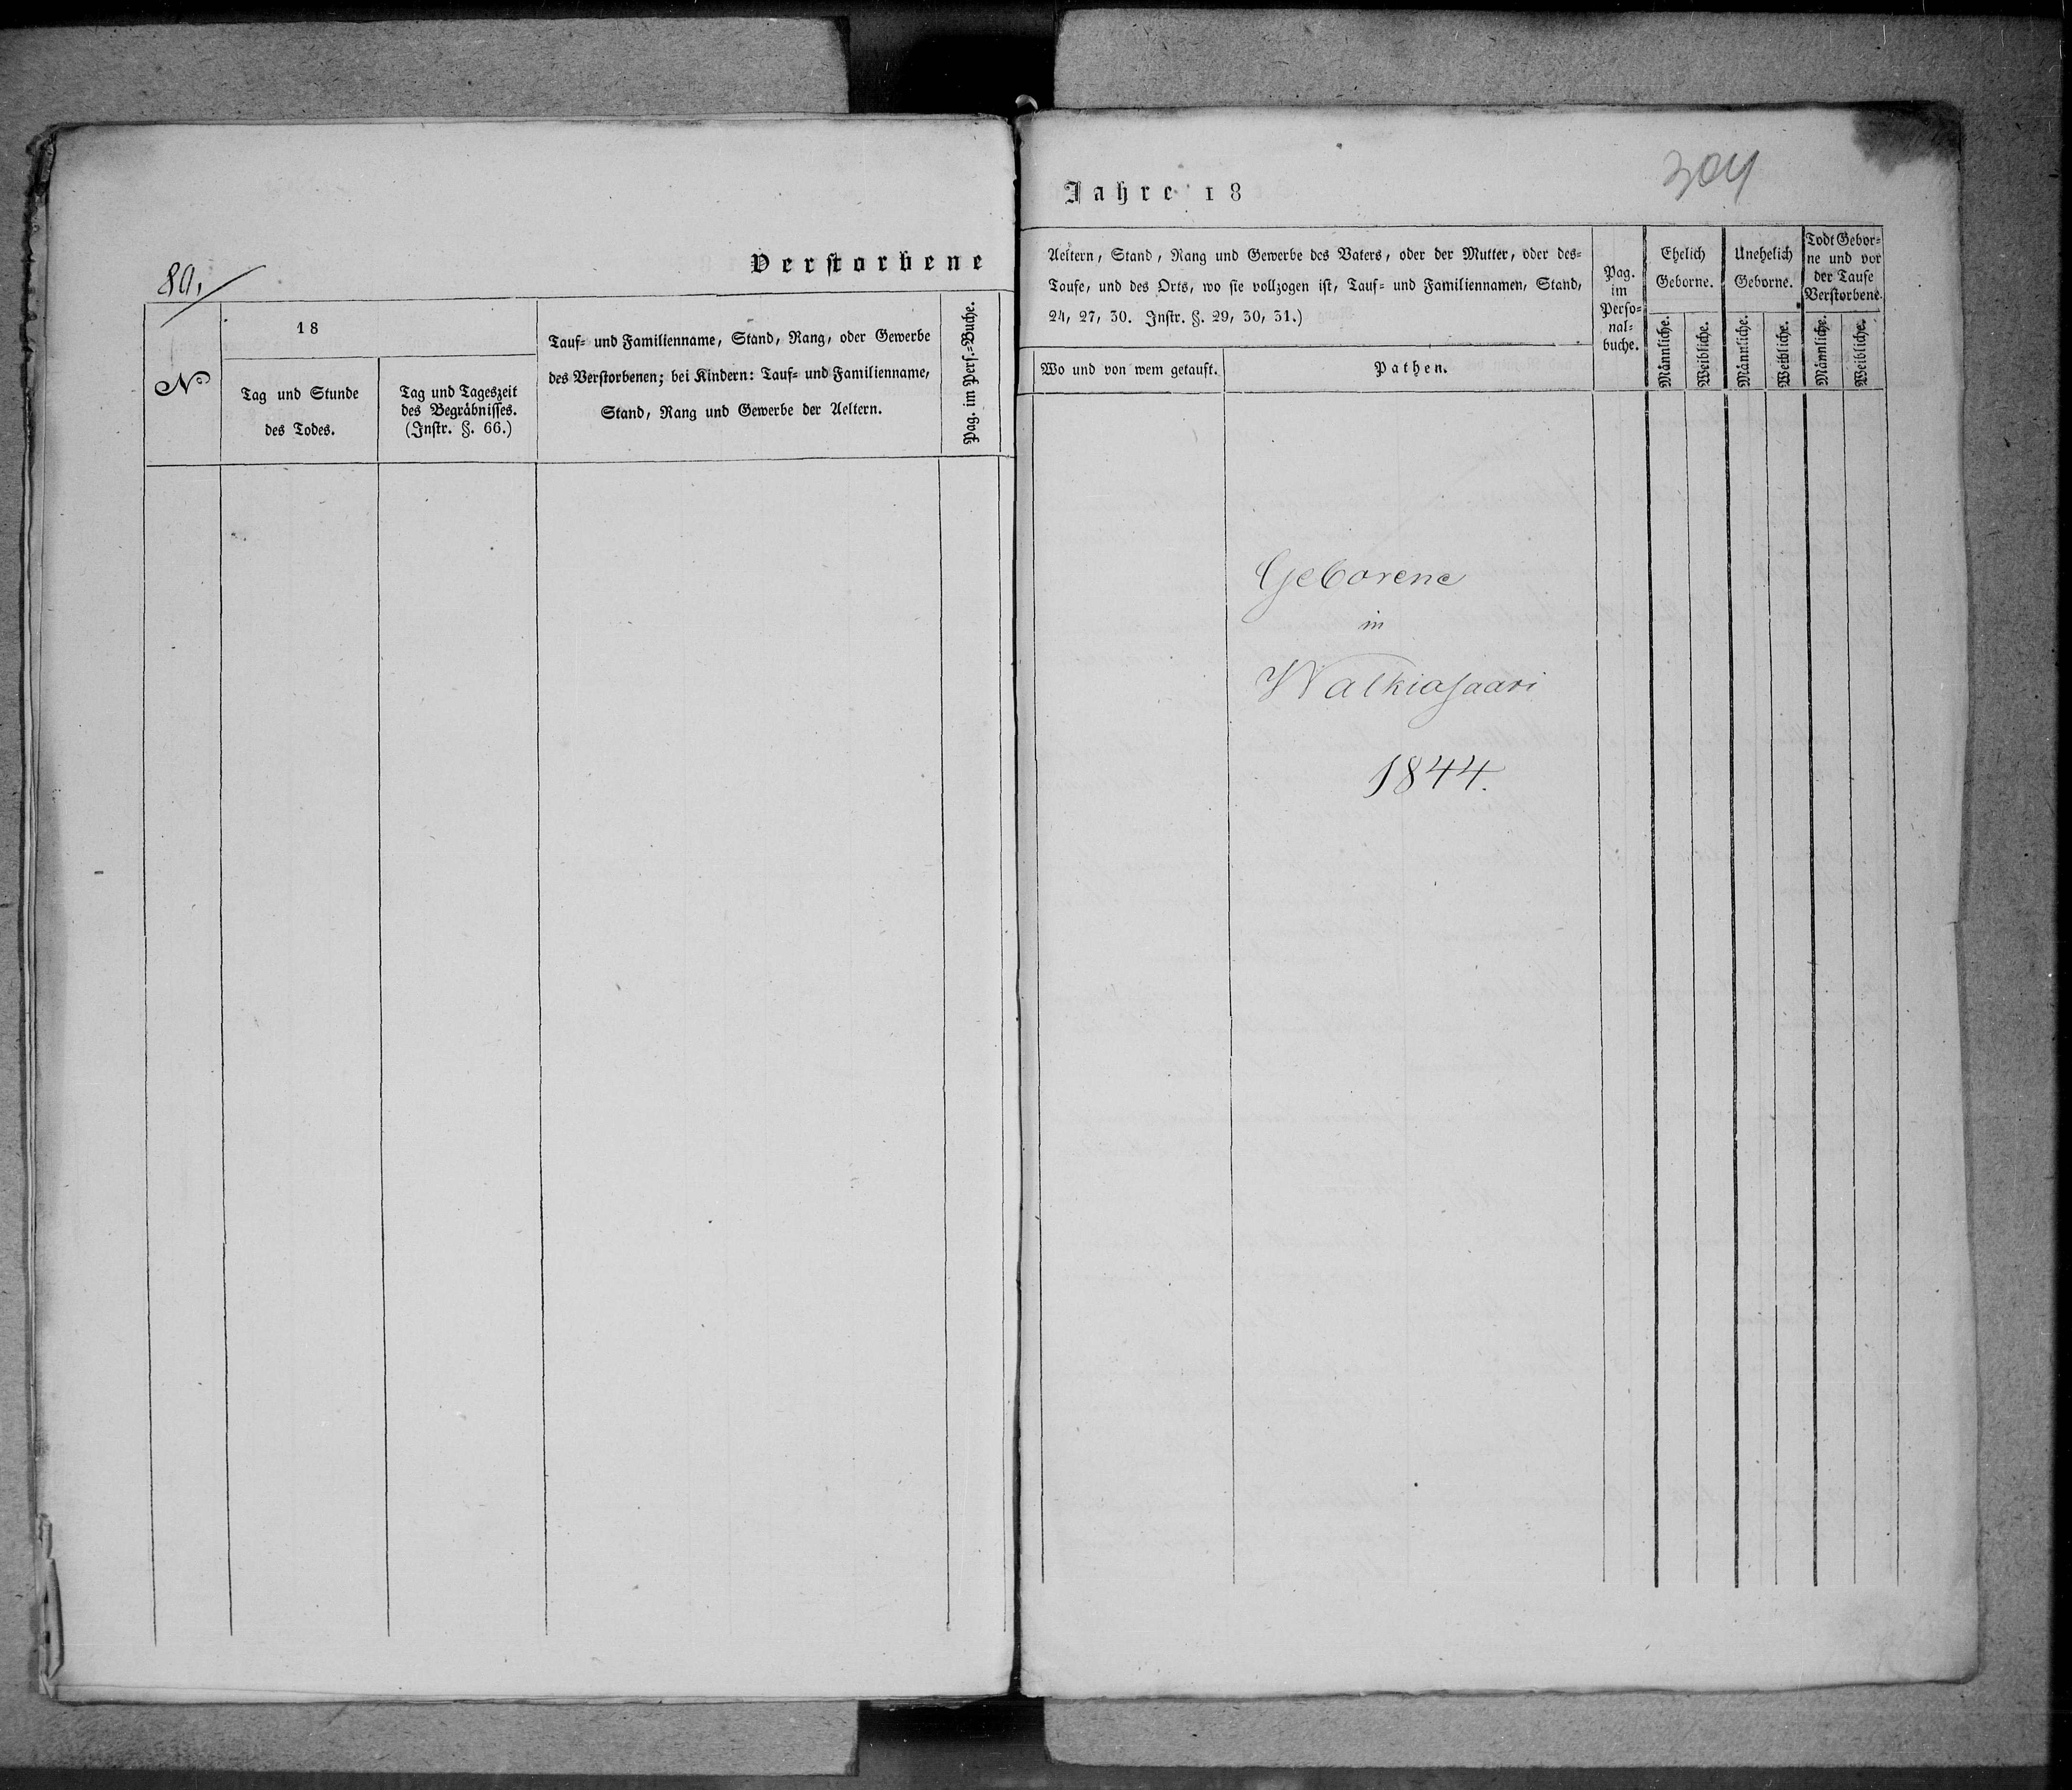 89.
Verstorbene
No
18
Tag und Stunde
des Todes.
Tag und Tageszeit
des Begräbnisses.
(Instr. §. 66.)
Tauf= und Familienname, Stand, Rang, oder Gewerbe
des Verstorbenen; bei Kindern: Tauf= und Familienname,
Stand, Rang und Gewerbe der Aeltern.
Pag. im Pers.=Buche.
304
Jahre 18
Aeltern, Stand, Rang und Gewerbe des Vaters, oder der Mutter, oder des=
Taufe, und des Orts, wo sie vollzogen ist, Tauf= und Familiennamen, Stand,
24, 27, 30. Instr. §. 29, 30, 31.)
Wo und von wem getauft.
Pathen.
Pag.
im
Perso=
nal=
buche.
Ehelich
Geborne.
Männliche.
Weibliche.
Unehelich
Geborne.
Männliche.
Weibliche.
Todt Gebor=
ne und vor
der Taufe
Verstorbene.
Männliche.
Weibliche.
Geborene
in
Walkiasaari
1844.